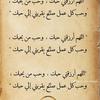 اللهم ارزقني حبك ، وحب من يحبك ،
وحب كل عمل صالح يقربني إلى حبك "
"اللهم ارزقني حبك ، وحب من يحبك ،
وحب كل عمل صالح يقربني إلى حبك "
"اللهم ارزقني حبك ، وحب من يحبك ،
وحب كل عمل صالح يقربني إلى حبك "